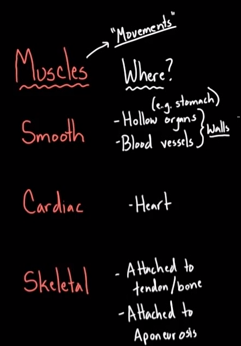 "Movements"
Muscles
Where?
(e.g. stomach)
Smooth
- Hollow organs
- Blood vessels
Walls
Cardiac
- Heart
Skeletal
- Attached to
tendon/bone
- Attached to
Aponeurosis